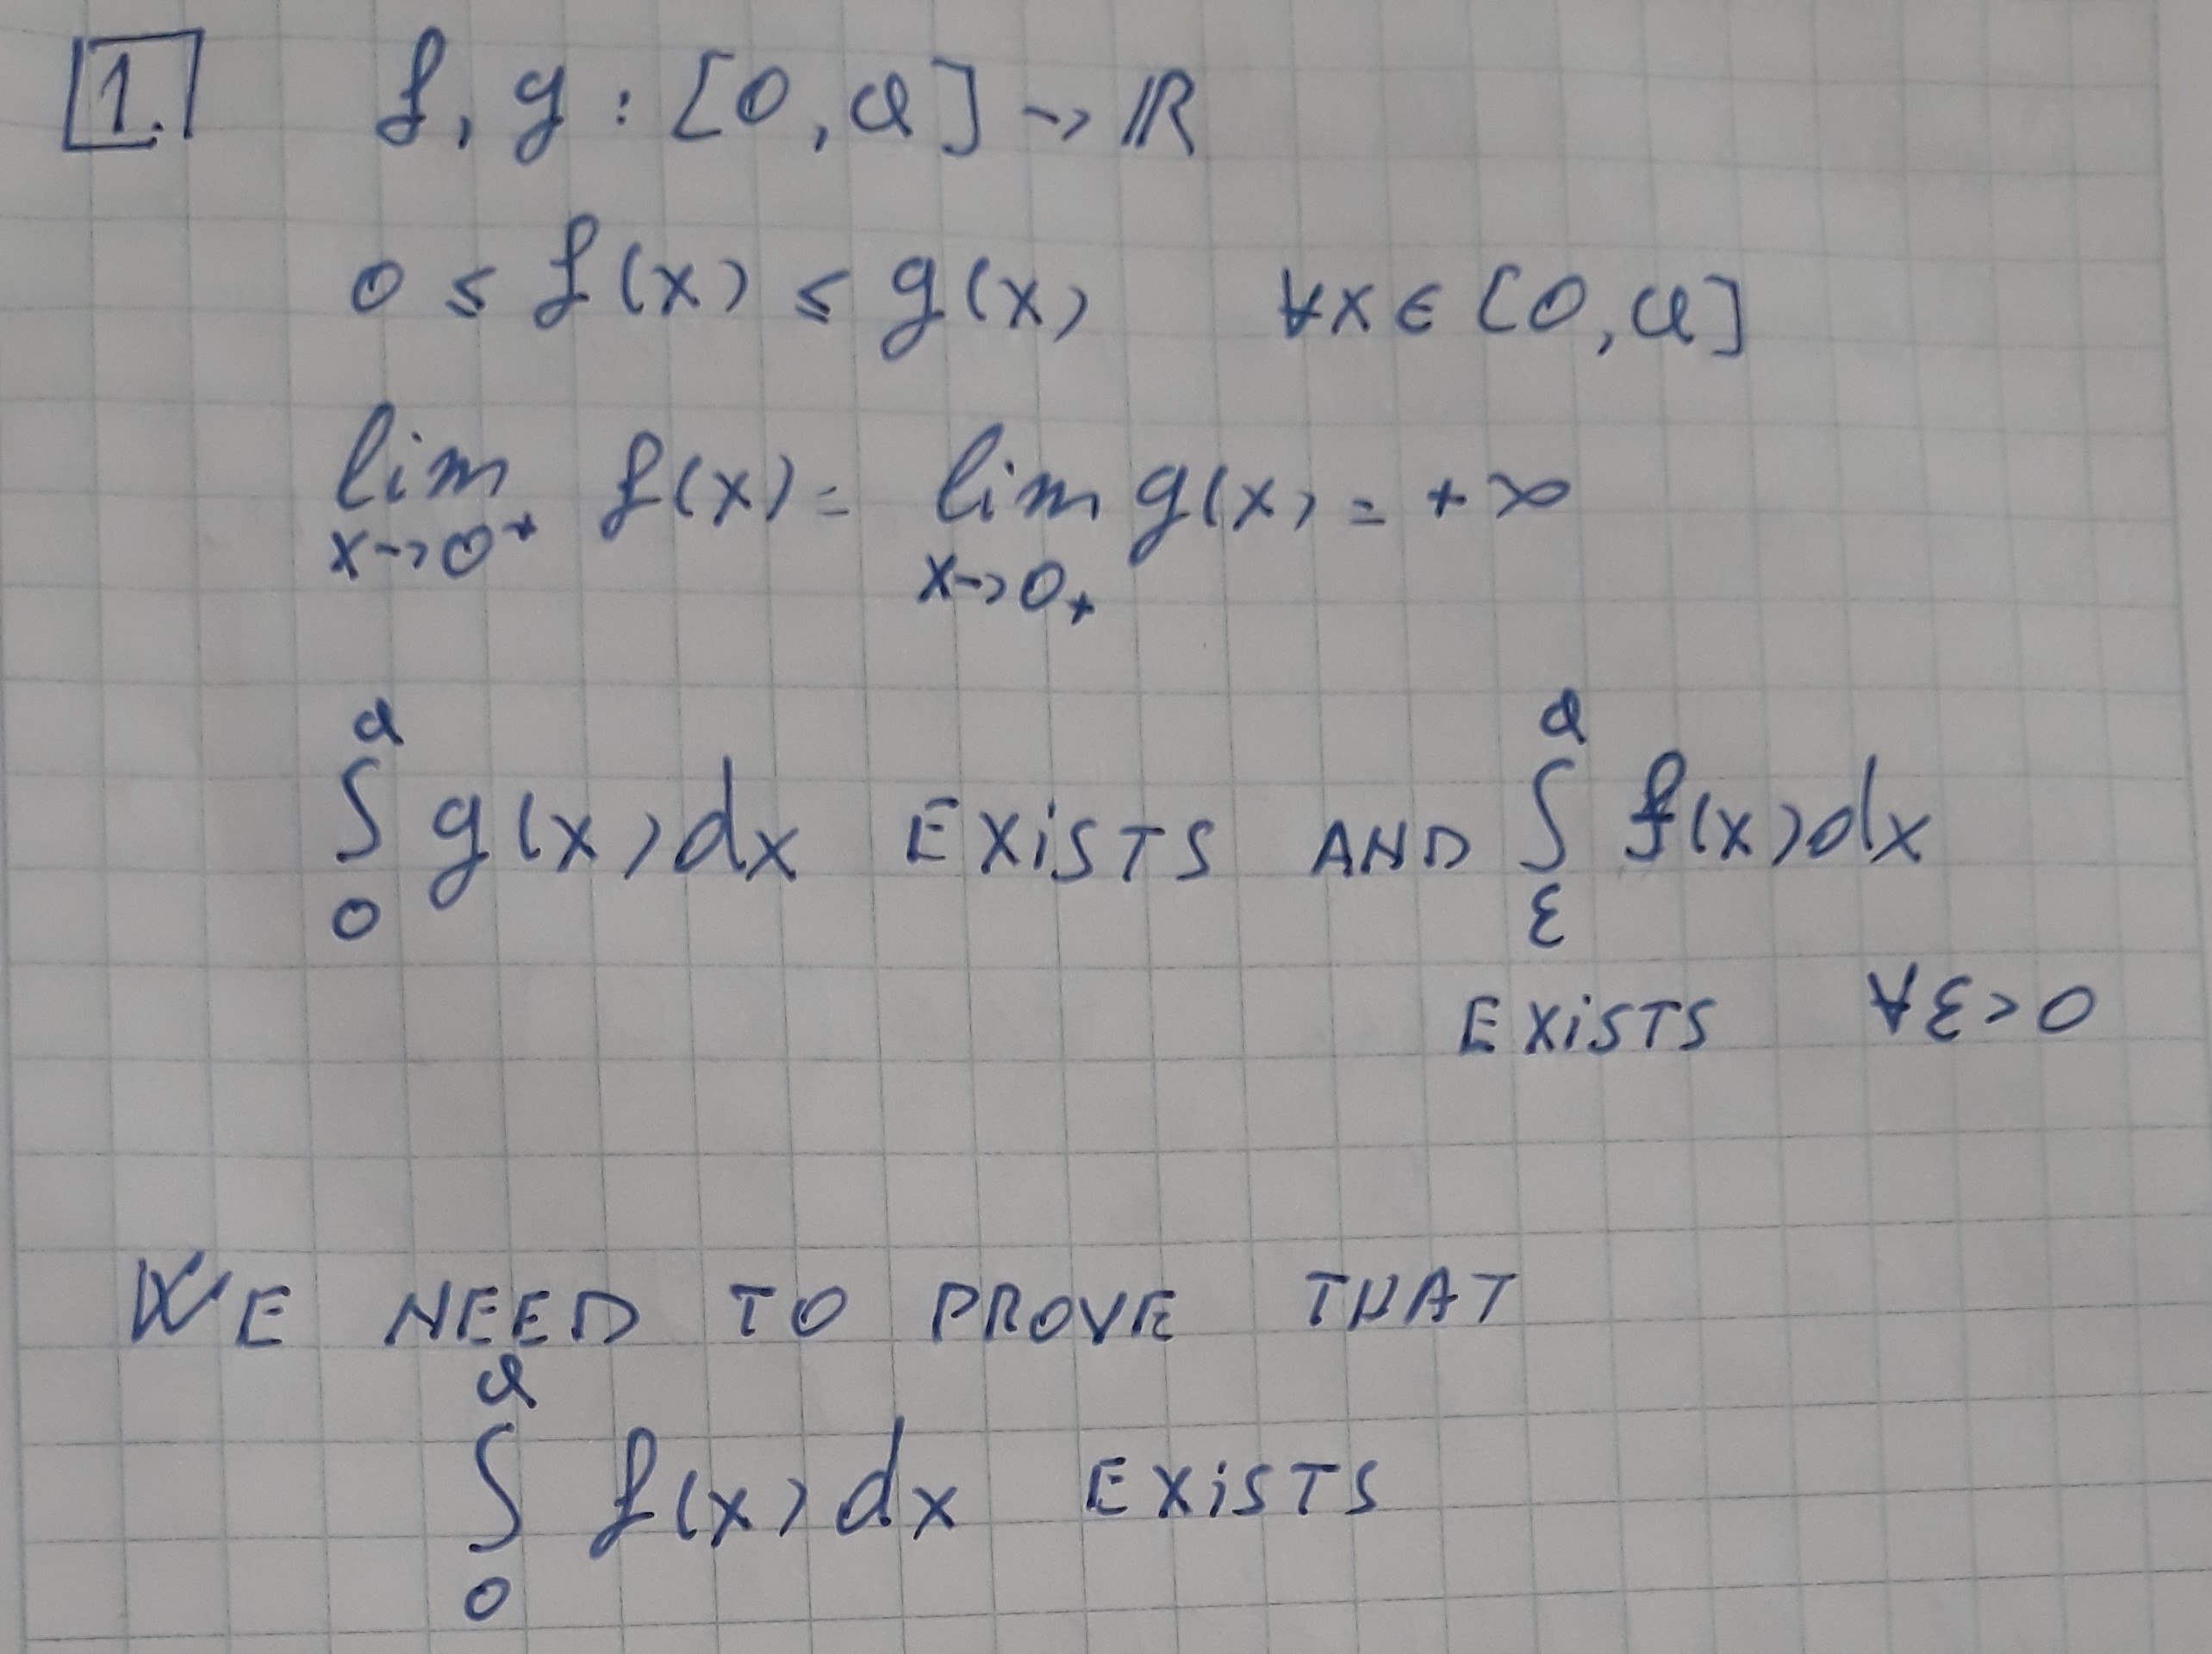 1. f, g : [0, a] → ℝ
0 ≤ f(x) ≤ g(x) ∀x ∈ [0, a]
lim_{x→0⁺} f(x) = lim_{x→0₊} g(x) = +∞
∫₀ᵃ g(x) dx EXiSTS AND ∫_ε^a f(x) dx
EXiSTS ∀ε > 0
WE NEED TO PROVE THAT
∫₀ᵃ f(x) dx EXiSTS